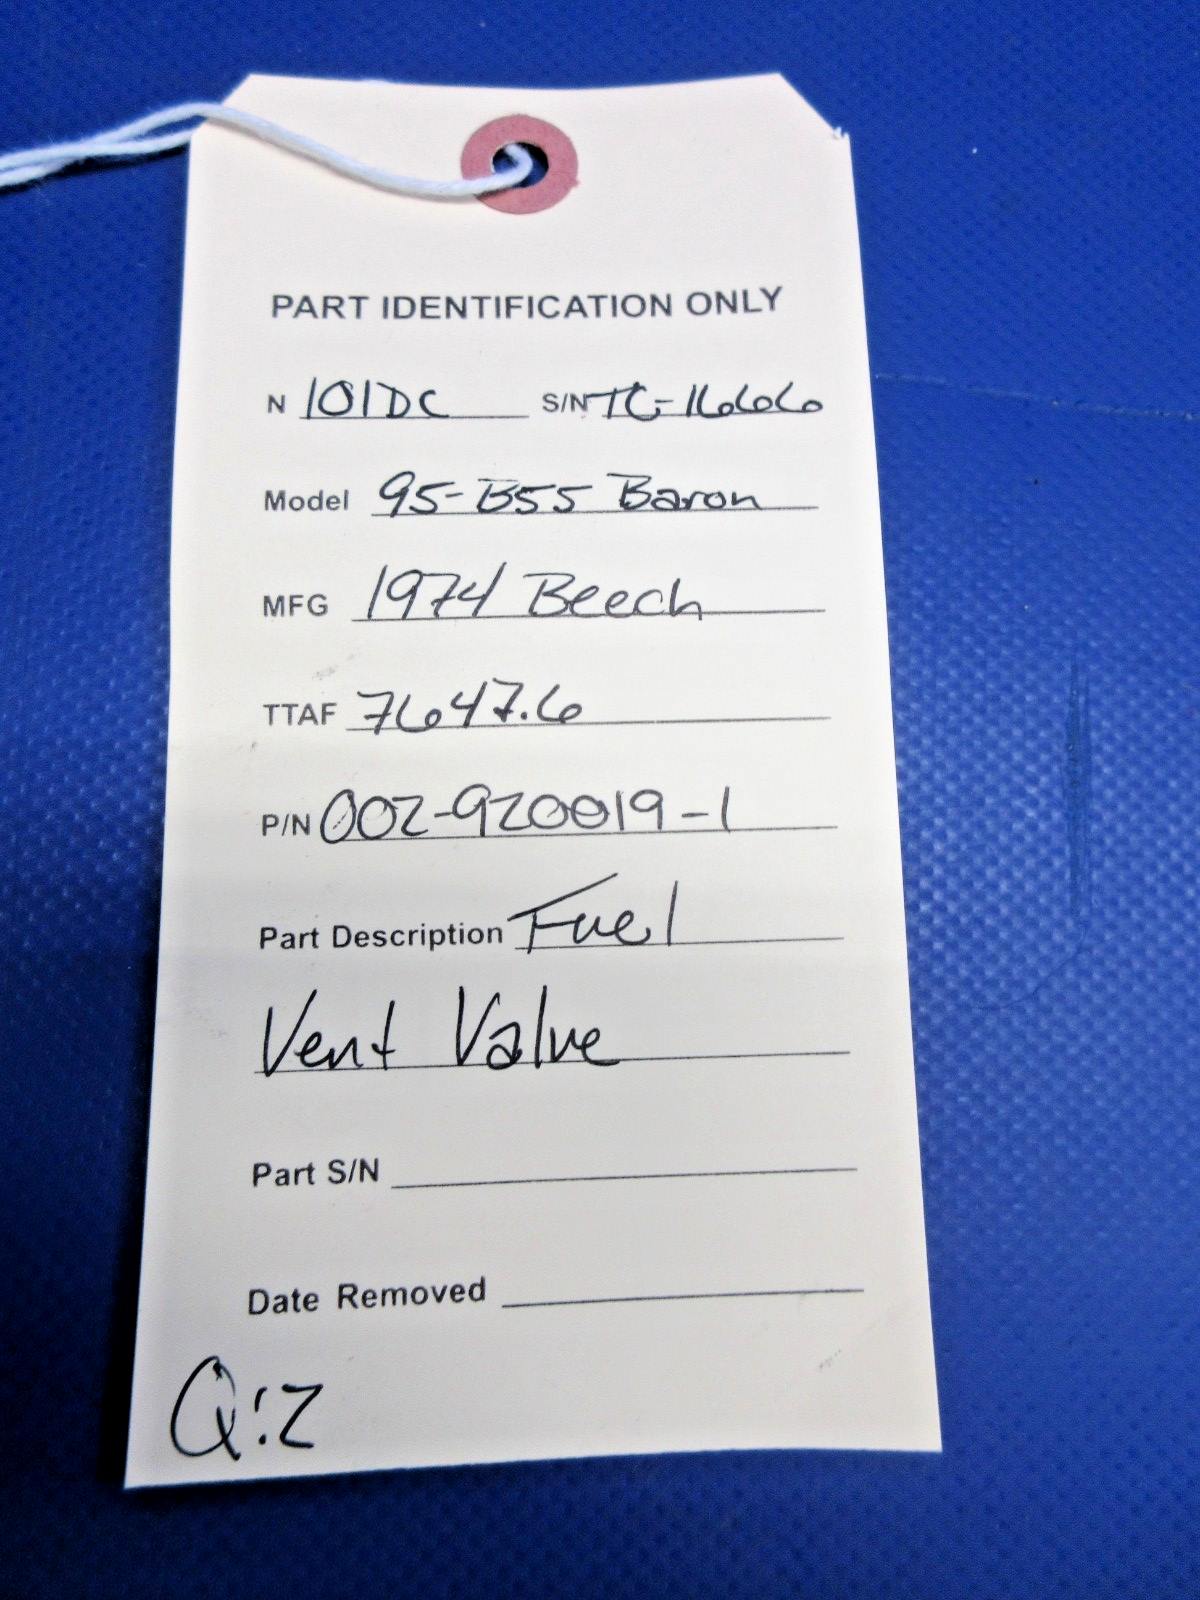 PART IDENTIFICATION ONLY
N 101DC S/N TC-1666
Model 95-B55 Baron
MFG 1974 Beech
TTAF 7647.6
P/N 002-920019-1
Part Description Fuel
Vent Valve
Part S/N
Date Removed
Q:2